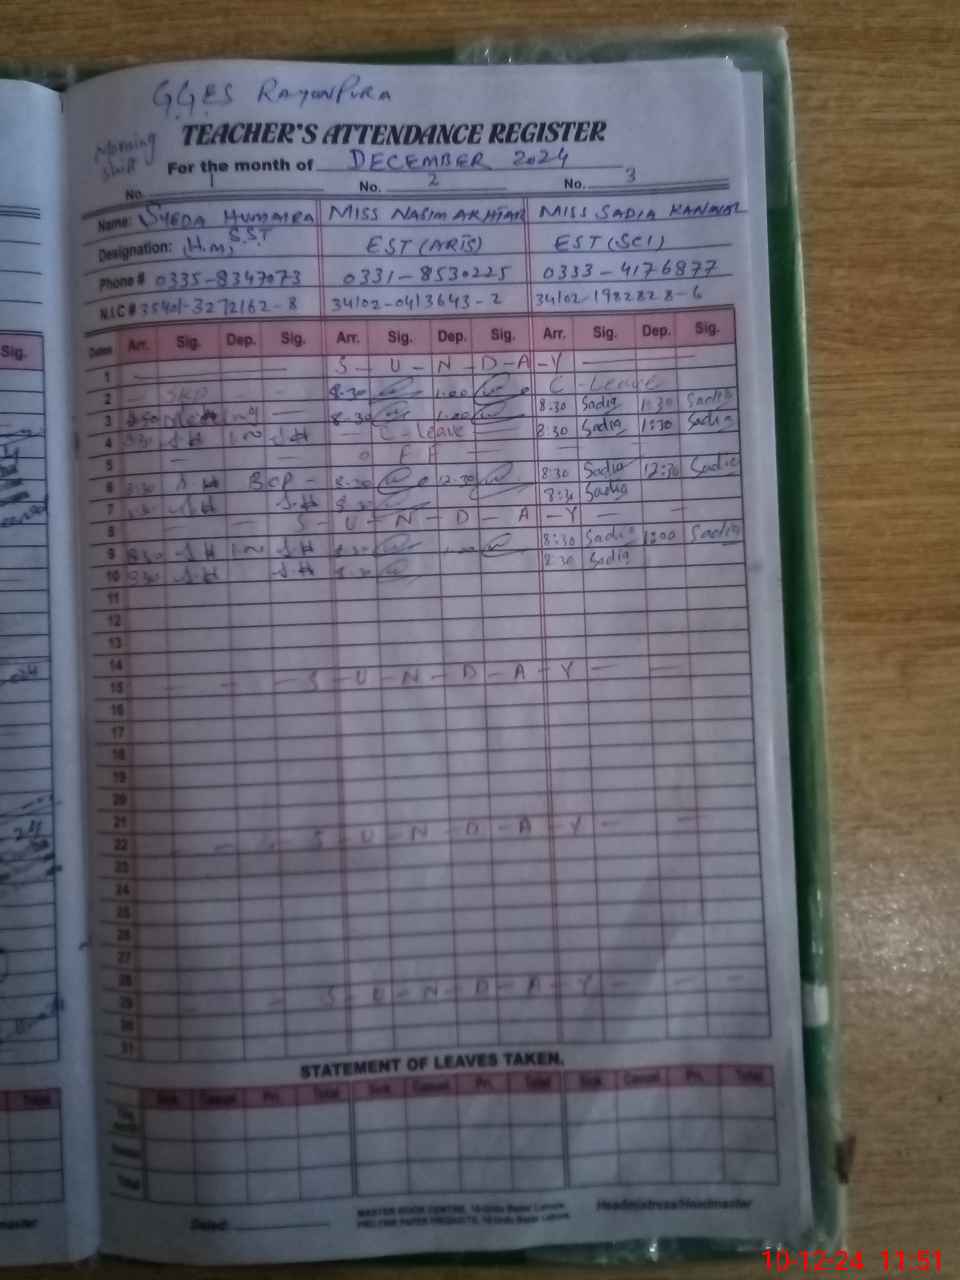 G.G.E.S RAYONPURA
Morning Shift
TEACHER'S ATTENDANCE REGISTER
For the month of DECEMBER 2024
No. 1 No. 2 No. 3
Name: SYEDA HUMAIRA MISS NASIM AKHTAR MISS SADIA KANWAL
Designation: H.M, S.S.T EST (ARTS) EST (SCI)
Phone # 0335-8347073 0331-8530225 0333-4176877
N.I.C # 35401-3272162-8 34102-0413643-2 34102-1982828-6
Sig. Dates Arr. Sig. Dep. Sig. Arr. Sig. Dep. Sig. Arr. Sig. Dep. Sig.
1 S-U-N-D-A-Y
2 8.30 1.00 C-Leave
3 8.30 1.00 8:30 Sadia 1:30 Sadia
4 S.H S.H C-Leave 8:30 Sadia 1:30 Sadia
5 O F F
6 8:30 S.H 8.30 12.30 8:30 Sadia 12:30 Sadia
7 S.H S.H 8.30 8:30 Sadia
8 S-U-N-D-A-Y
9 8:30 S.H S.H 8.30 8:30 Sadia 1:00 Sadia
10 S.H S.H 8.30 8:30 Sadia
11
12
13
14
15 S-U-N-D-A-Y
16
17
18
19
20
21
22 S-U-N-D-A-Y
23
24
25
26
27
28
29 S-U-N-D-A-Y
30
31
STATEMENT OF LEAVES TAKEN.
Total Sick Casual Pri. Total Sick Casual Pri. Total Sick Casual Pri. Total
Total
Dated: MASTER BOOK CENTRE, 10-Urdu Bazar Lahore. Headmistress/Headmaster
10-12-24 11:51